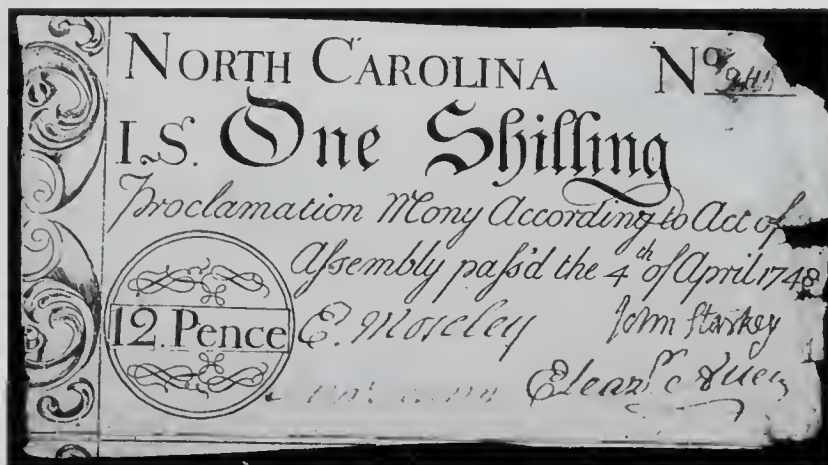 NORTH CAROLINA No
I.S. One Shilling
Proclamation Mony According to Act of
Assembly pass'd the 4th of April 1748
12. Pence E. Moseley John Starkey
Eleazr Allen